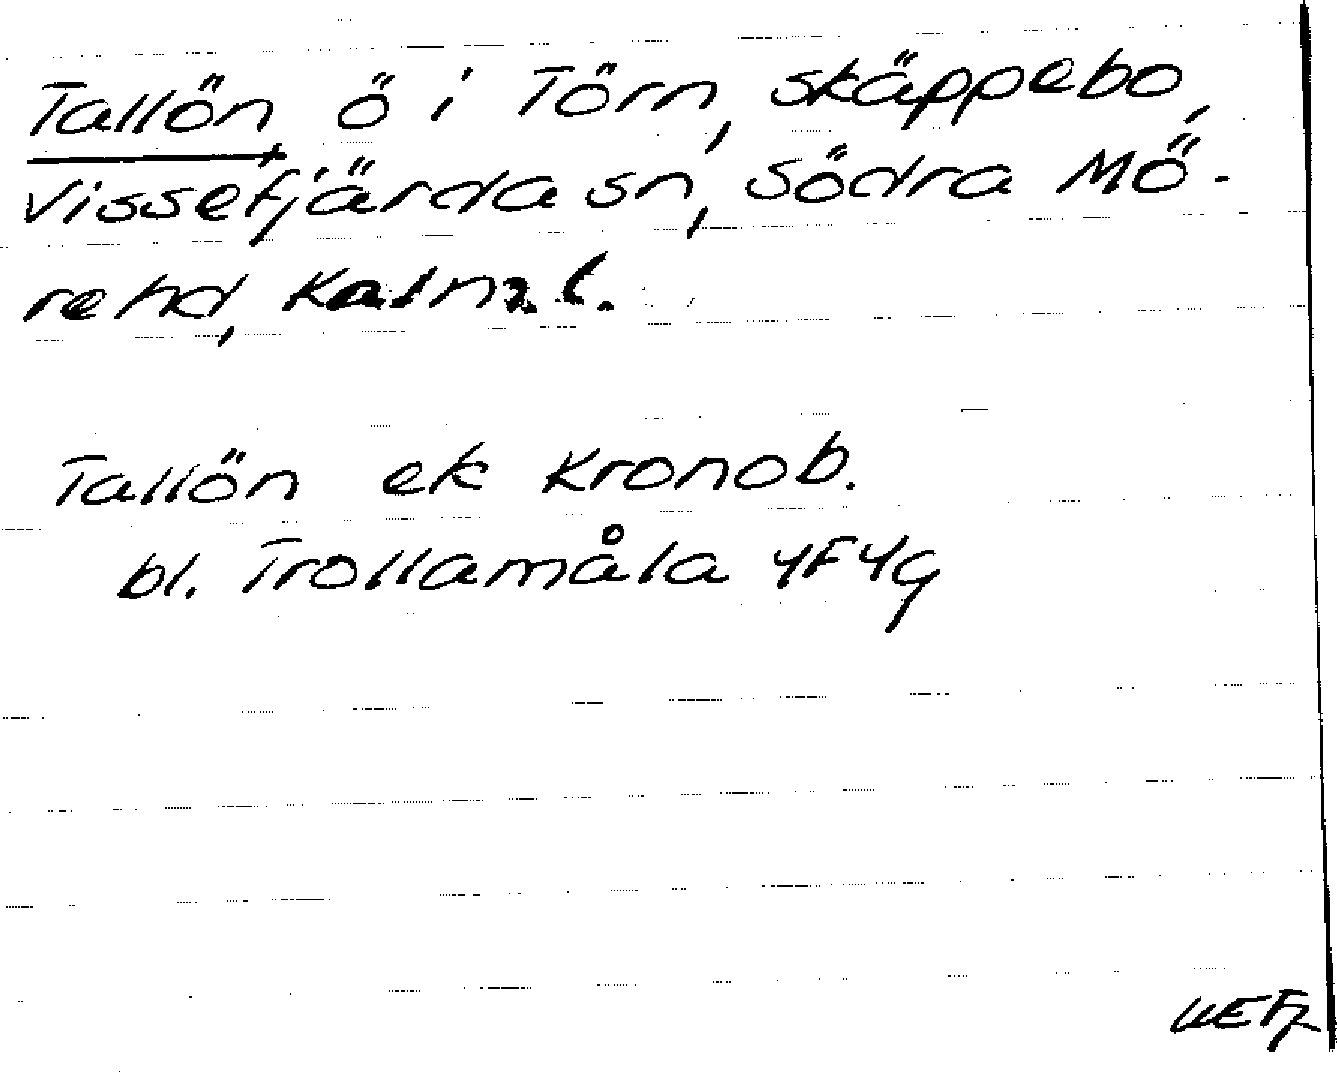 Tallön, ö i Törn, Skäppebo,
Vissefjärda sn, Södra Mö-
re hd, Kalm. l.
Tallön ek Kronob.
bl. Trollamåla 4F4g